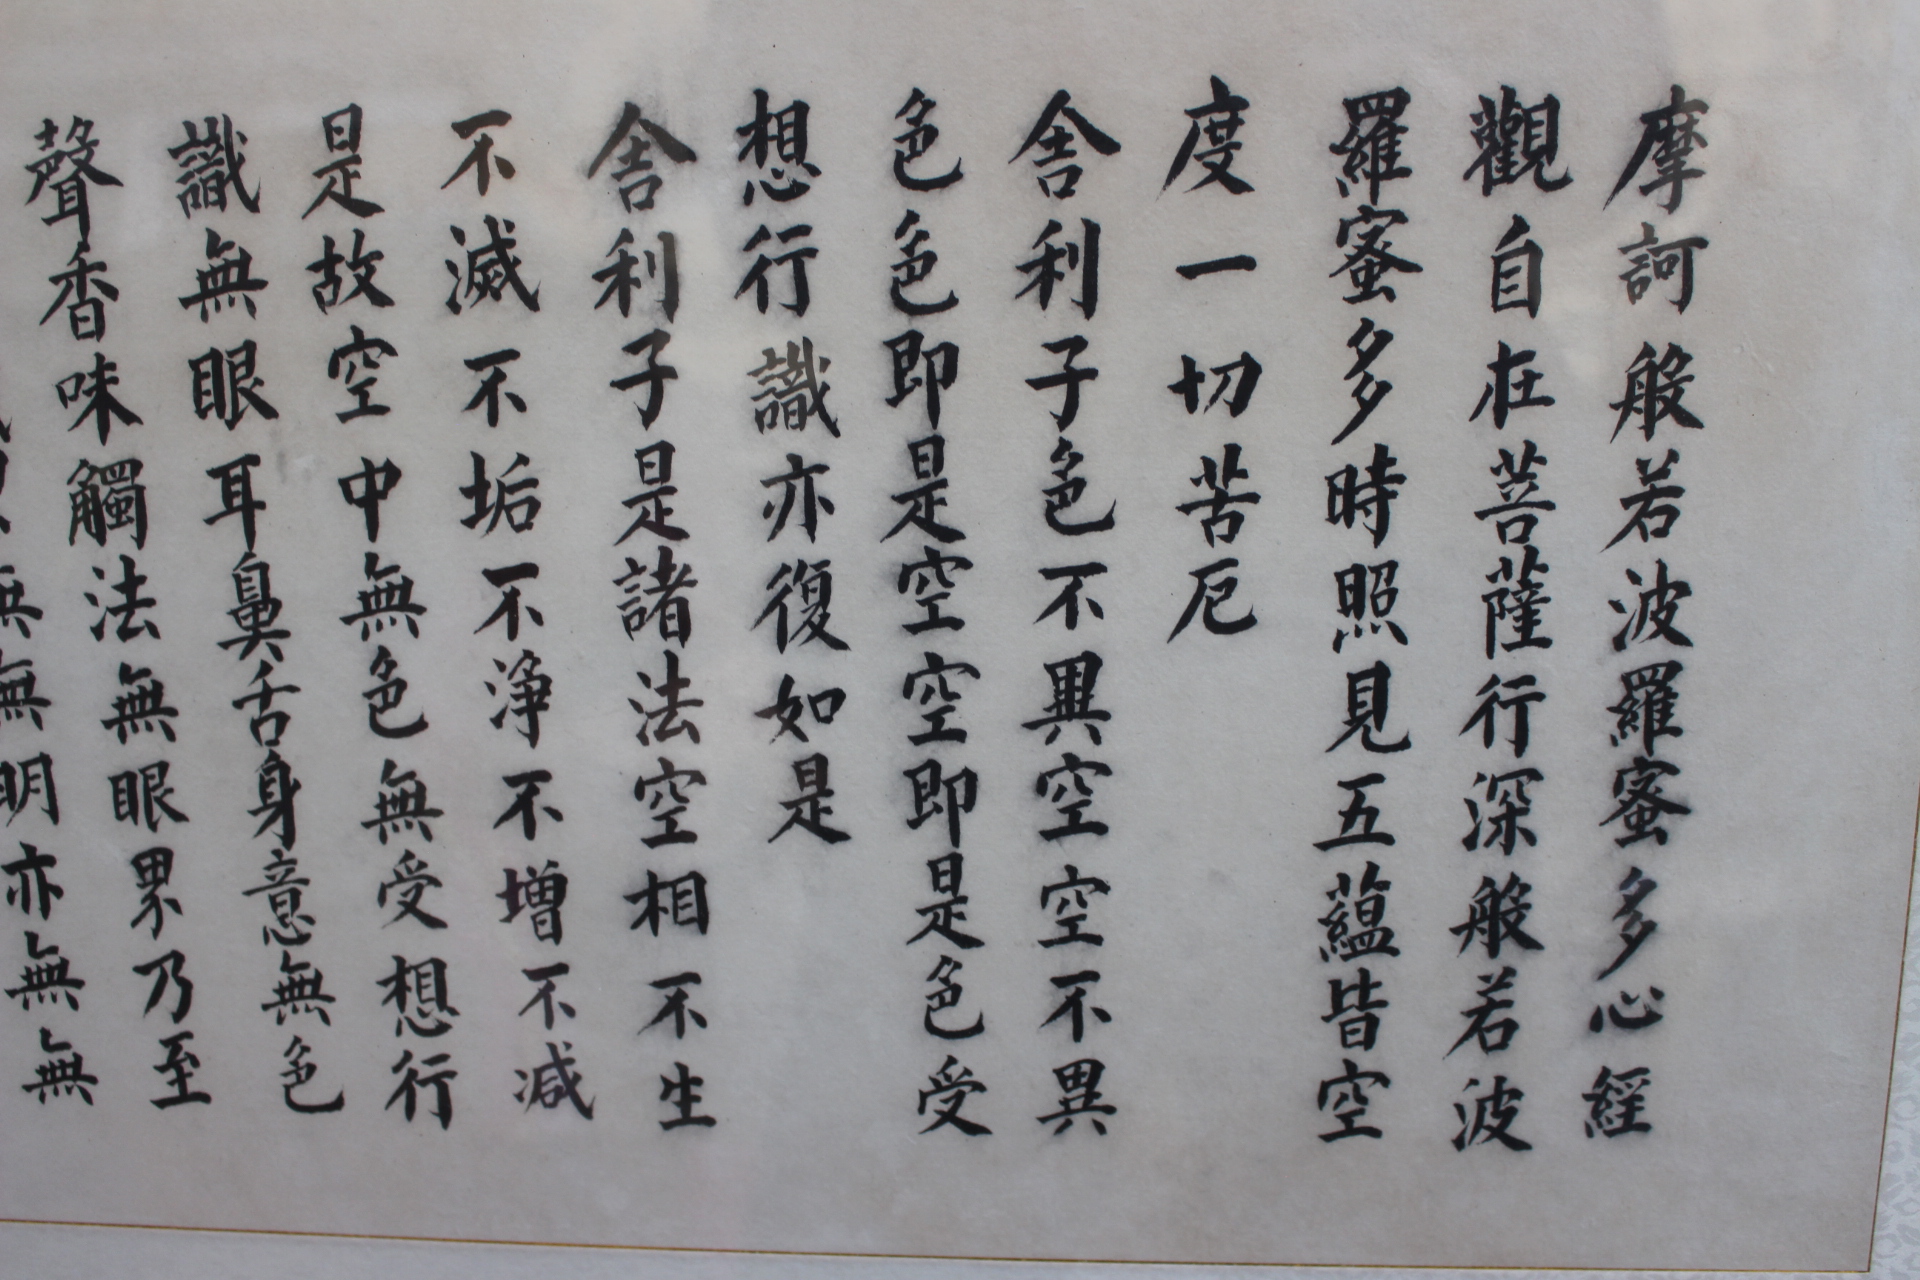 摩訶般若波羅蜜多心經
觀自在菩薩行深般若波
羅蜜多時照見五蘊皆空
度一切苦厄
舍利子色不異空空不異
色色即是空空即是色受
想行識亦復如是
舍利子是諸法空相不生
不滅不垢不淨不增不減
是故空中無色無受想行
識無眼耳鼻舌身意無色
聲香味觸法無眼界乃至
無無明亦無無